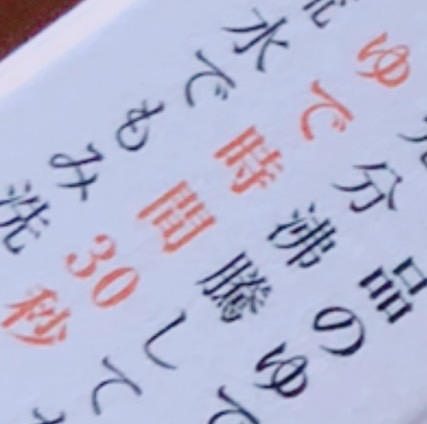 品のゆで
分沸騰して
ゆで時間30秒
水でもみ洗